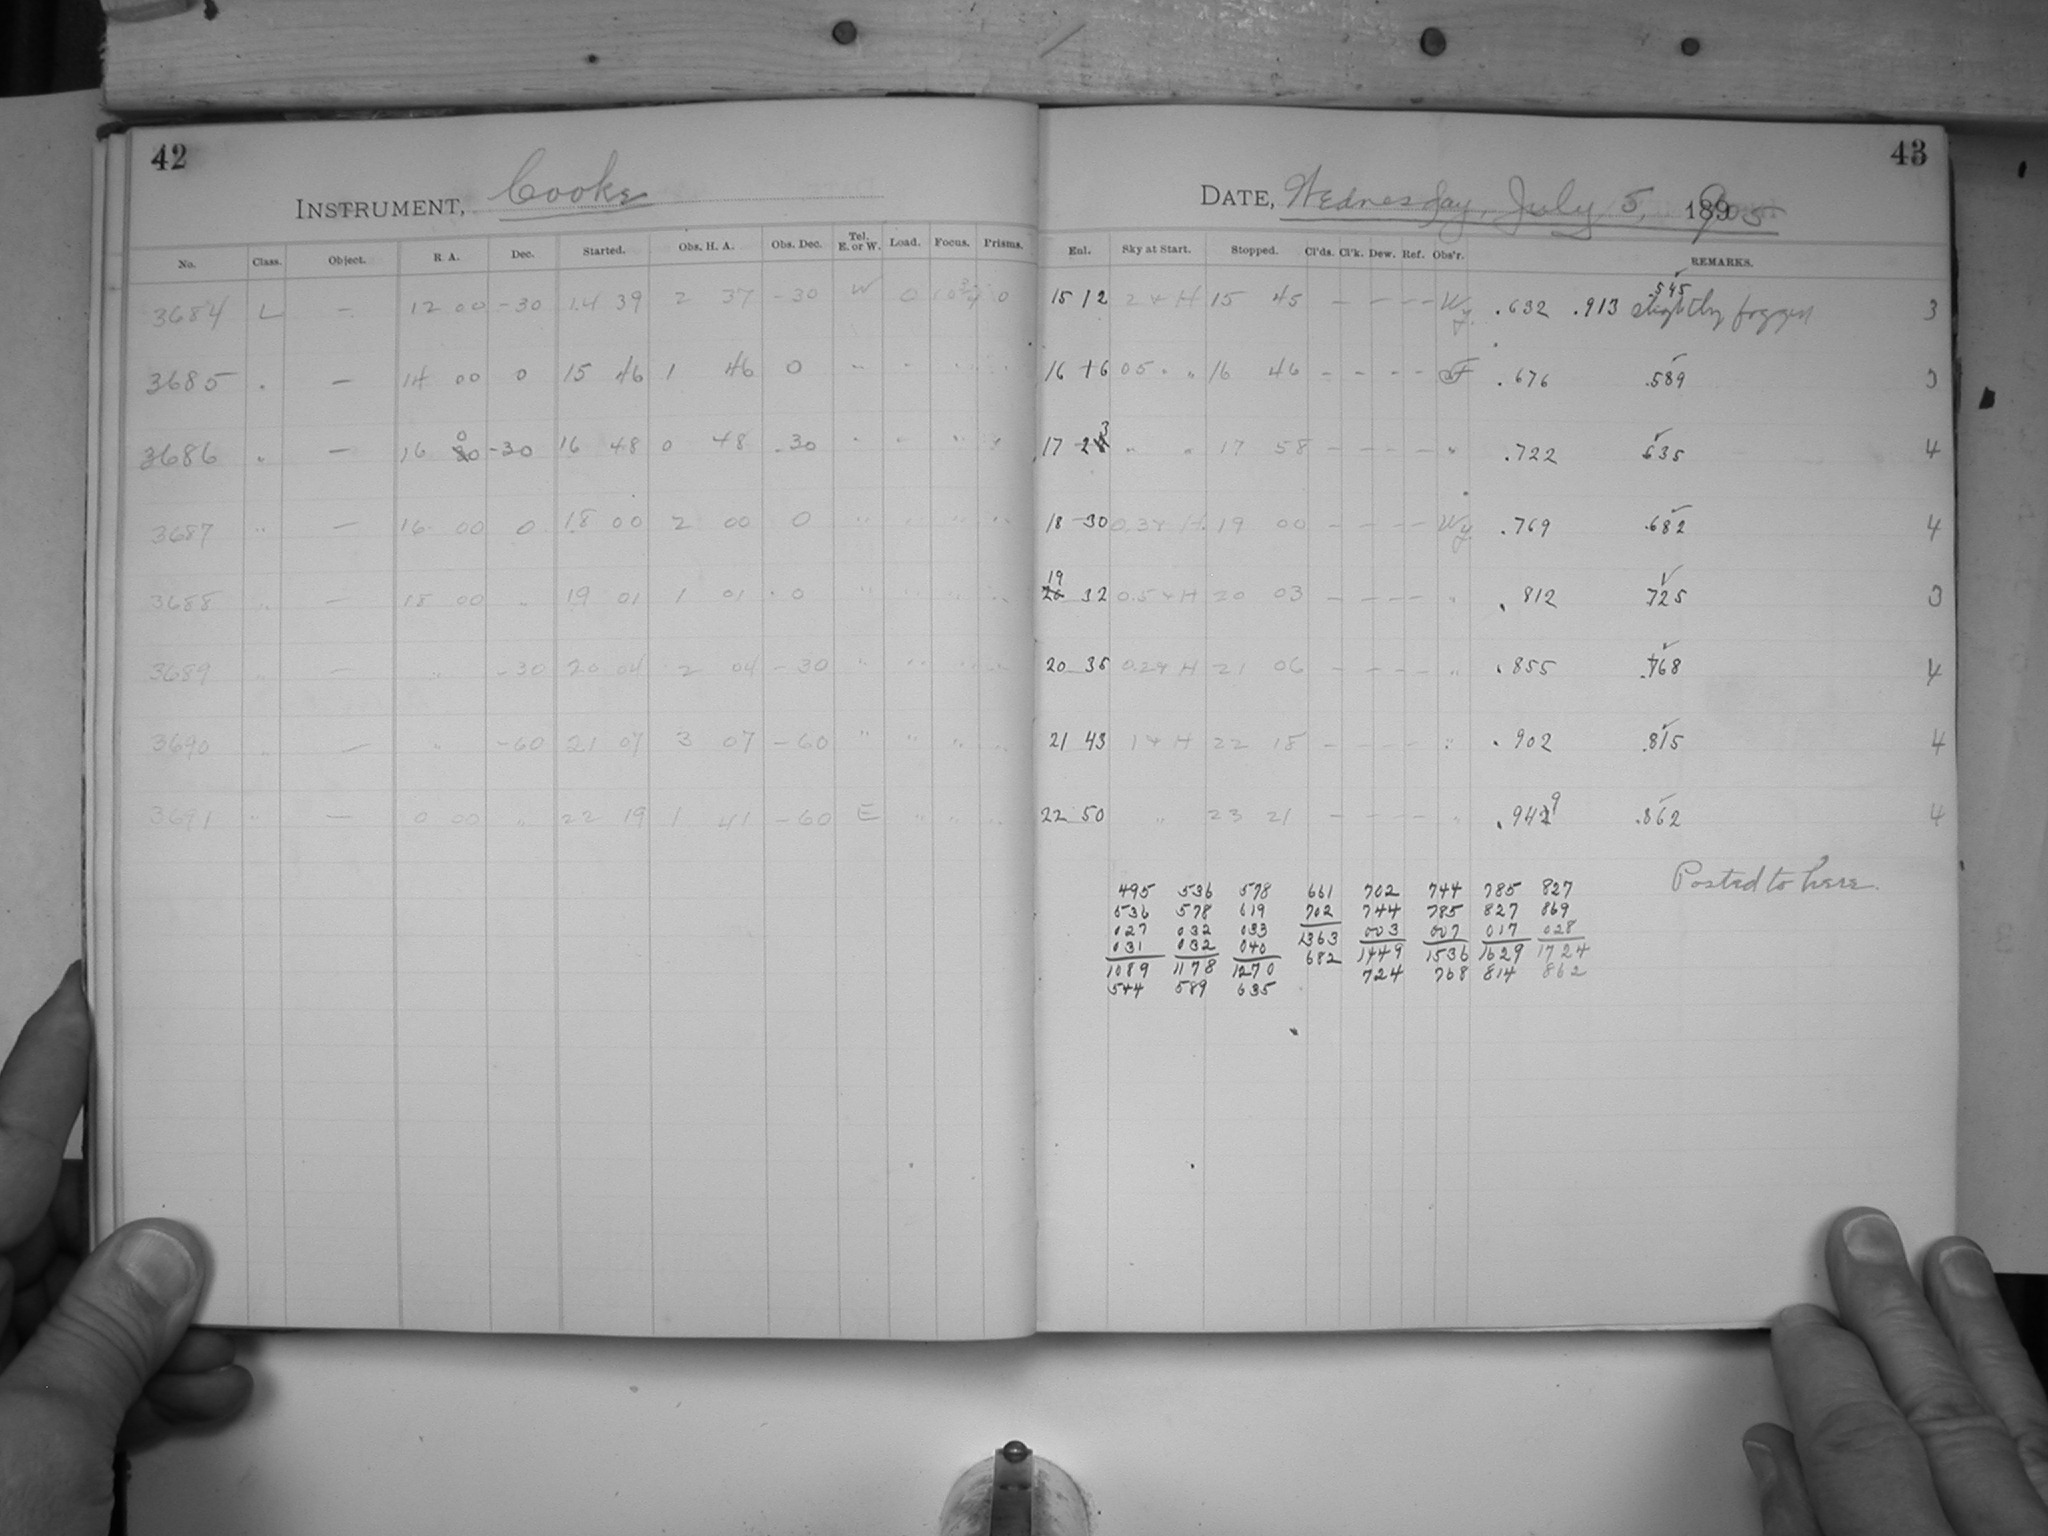 42
INSTRUMENT, Cooke
No. Class. Object. R. A. Dec. Started. Obs. H. A. Obs. Dec. Tel. E. or W. Load. Focus. Prisms.
3684 L — 12 00 -30 14 39 2 37 -30 W 0 0
3685 " — 14 00 0 15 46 1 46 0 " " " "
3686 " — 16 0 -30 16 48 0 48 -30 " " " "
3687 " — 16 00 0 18 00 2 00 0 " " " "
3688 " — 18 00 " 19 01 1 01 0 " " " "
3689 " — " -30 20 04 2 04 -30 " " " "
3690 " — " -60 21 07 3 07 -60 " " " "
3691 " — 0 00 " 22 19 1 41 -60 E " " "
43
DATE, Wednesday, July 5, 1905
Enl. Sky at Start. Stopped. Cl'ds. Cl'k. Dew. Ref. Obs'r. REMARKS.
15 12 2 + H 15 45 — — — — Wy. .632 .913 .545 slightly fogged 3
16 +6 05 " " 16 46 — — — — .676 .589 3
17 -23 " " 17 58 — — — — " .722 635 4
18 -30 19 00 — — — — Wy .769 .682 4
19 32 0.5 + H 20 03 — — — — " .812 725 3
20 35 0.2+ H 21 06 — — — — " .855 .768 4
21 43 1 + H 22 18 — — — — " .902 .815 4
22 50 " 23 21 — — — — " .949 .862 4
Posted to here.
495 536 578 661 702 744 785 827
536 578 619 702 744 785 827 869
027 032 033 1363 003 007 017 028
031 032 040 682 1449 1536 1629 1724
1089 1178 1270 724 768 814 862
544 589 635